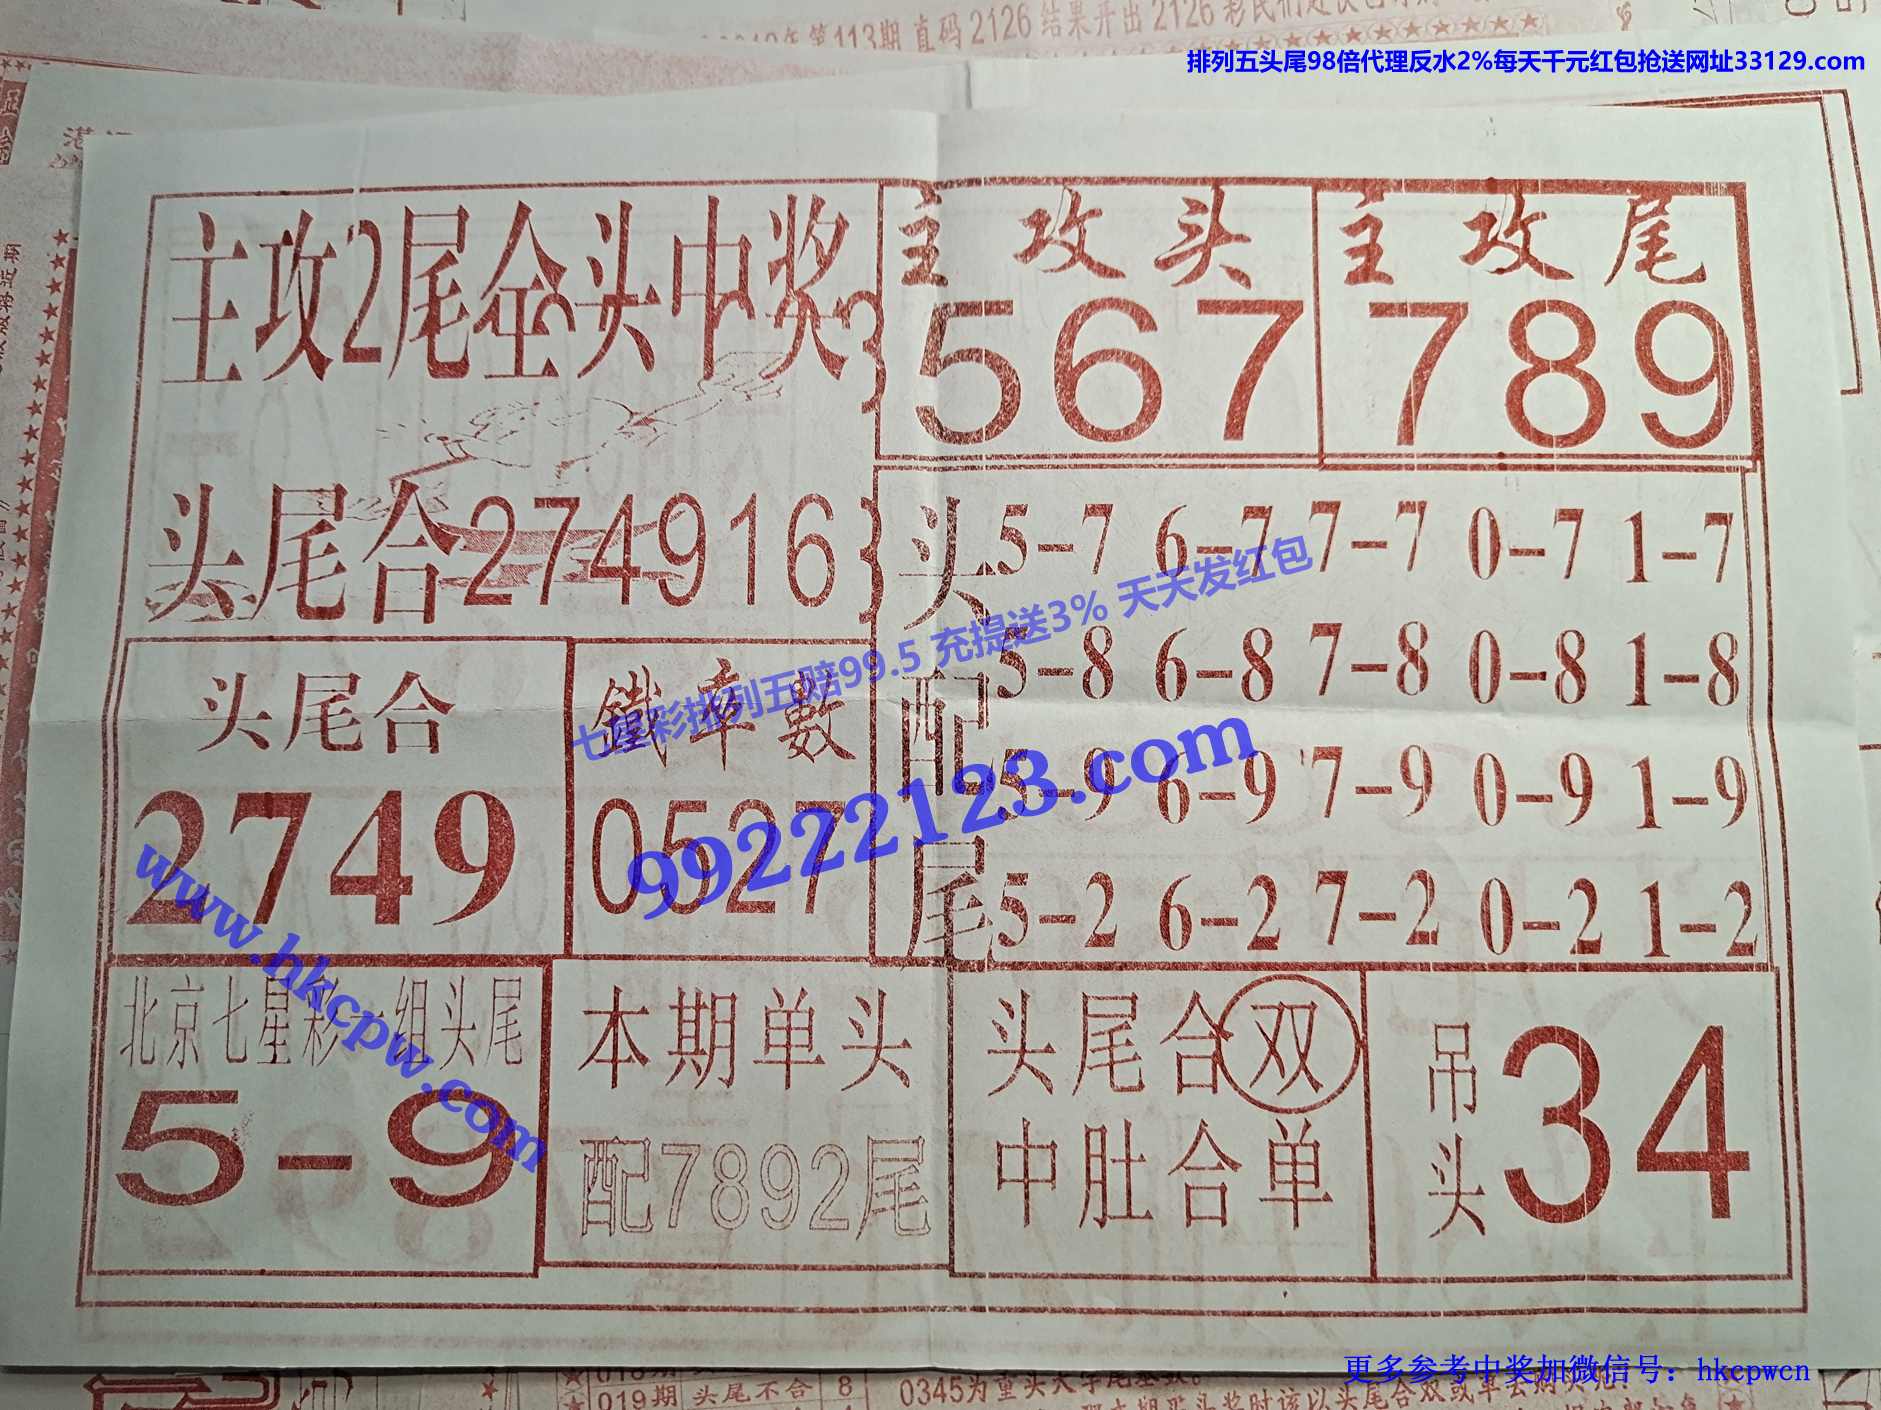 年第113期 直码2126 结果开出2126
排列五头尾98倍代理反水2%每天千元红包抢送网址33129.com
主攻2尾全头中奖
主攻头
567
主攻尾
789
头尾合274916
头配尾
5-7 6-7 7-7 0-7 1-7
5-8 6-8 7-8 0-8 1-8
5-9 6-9 7-9 0-9 1-9
5-2 6-2 7-2 0-2 1-2
七星彩排列五赔99.5 充提送3% 天天发红包
99222123.com
头尾合
2749
鐵率數
0527
www.hkcpw.com
北京七星彩一组头尾
5-9
本期单头
配7892尾
头尾合双
中肚合单
吊头
34
更多参考中奖加微信号：hkcpwcn
019期 头尾不合 8
0345为重头大字尾基数。